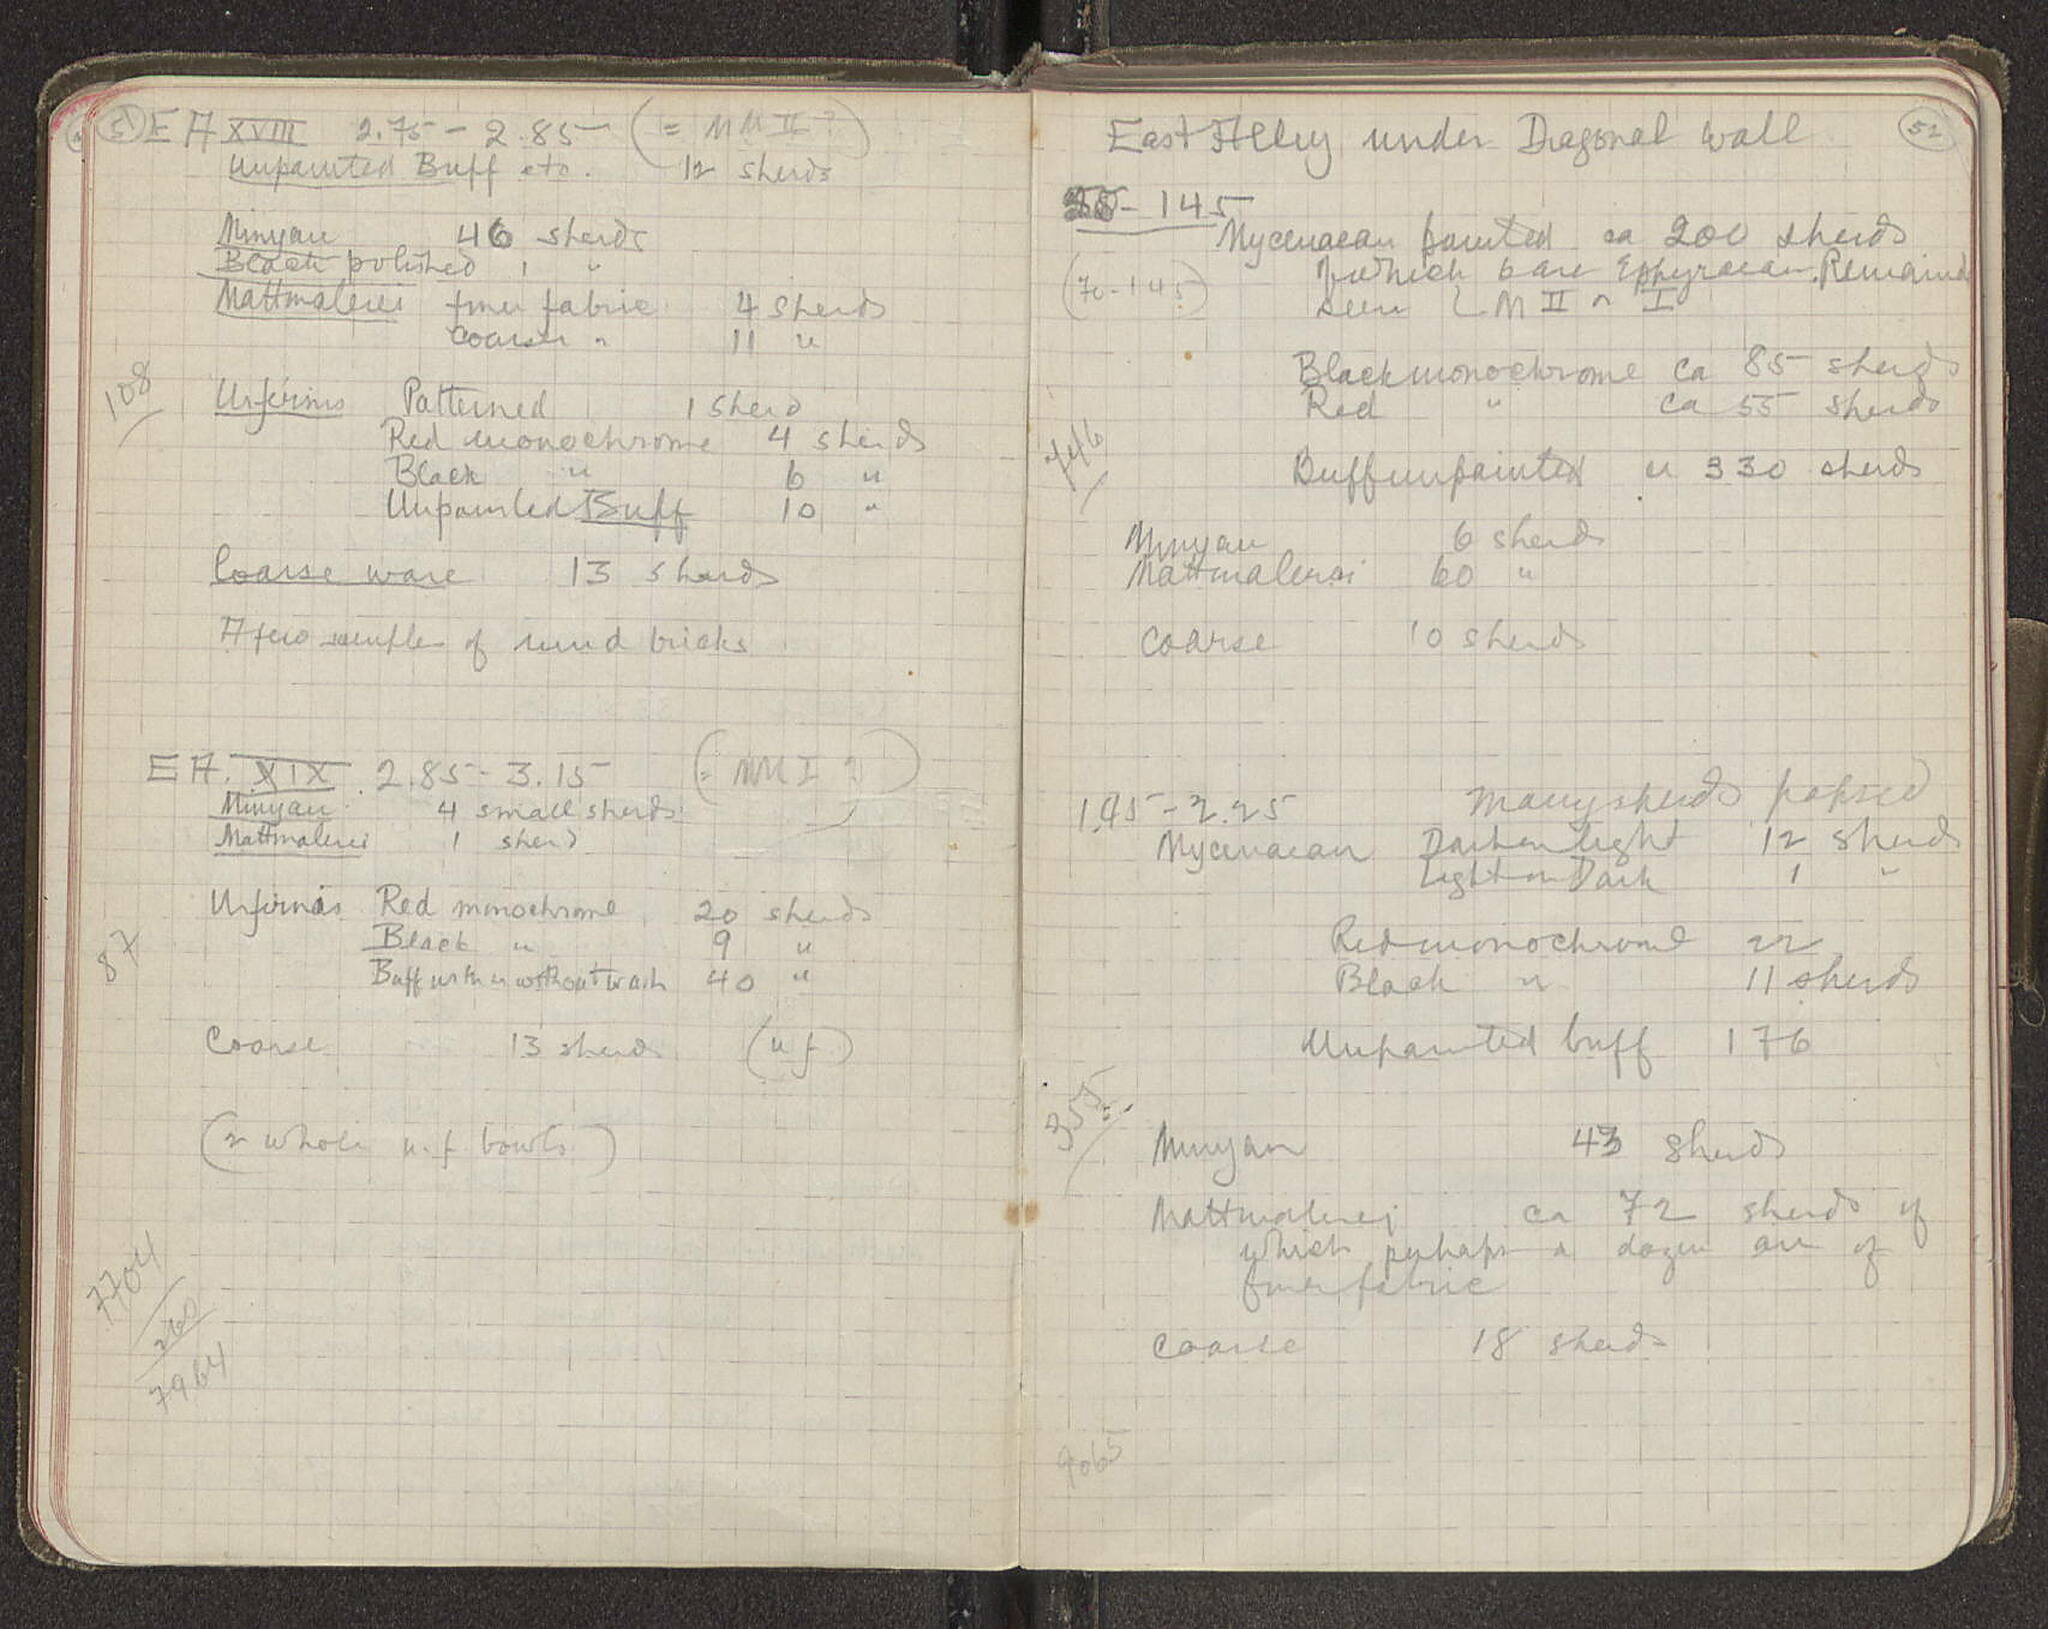 51
E A XVIII 2.75 - 2.85 (= MM II ?)
Unpainted Buff etc. 12 sherds
Minyan 46 sherds
Black polished 1 "
Mattmalerei finer fabric 4 sherds
Coarser " 11 "
108
Urfirnis Patterned 1 sherd
Red monochrome 4 sherds
Black " 6 "
Unpainted Buff 10 "
Coarse ware 13 sherds
A few samples of mud bricks
E A. XIX 2.85 - 3.15 (= MM I ?)
Minyan 4 small sherds
Mattmalerei 1 sherd
Urfirnis Red monochrome 20 sherds
Black " 9 "
87
Buff with or without wash 40 "
Coarse 13 sherds (u f)
(2 whole u. f bowls)
7704
260
7964
52
East Alley under Diagonal Wall
- 145
Mycenaean painted ca 200 sherds
(70-145)
of which 6 are Ephyraean. Remaind
seem LM II or I
Black monochrome ca 85 sherds
Red " ca 55 sherds
746
Buff unpainted ca 330 sherds
Minyan 6 sherds
Mattmalerei 60 "
Coarse 10 sherds
1.45 - 2.25 Many sherds papsed
Mycenaean Dark on light 12 sherds
Light on Dark 1 "
Red monochrome 22
Black " 11 sherds
Unpainted buff 176
355
Minyan 43 sherds
Mattmalerei ca 72 sherds of
which perhaps a dozen are of
finer fabric
Coarse 18 sherds
9065